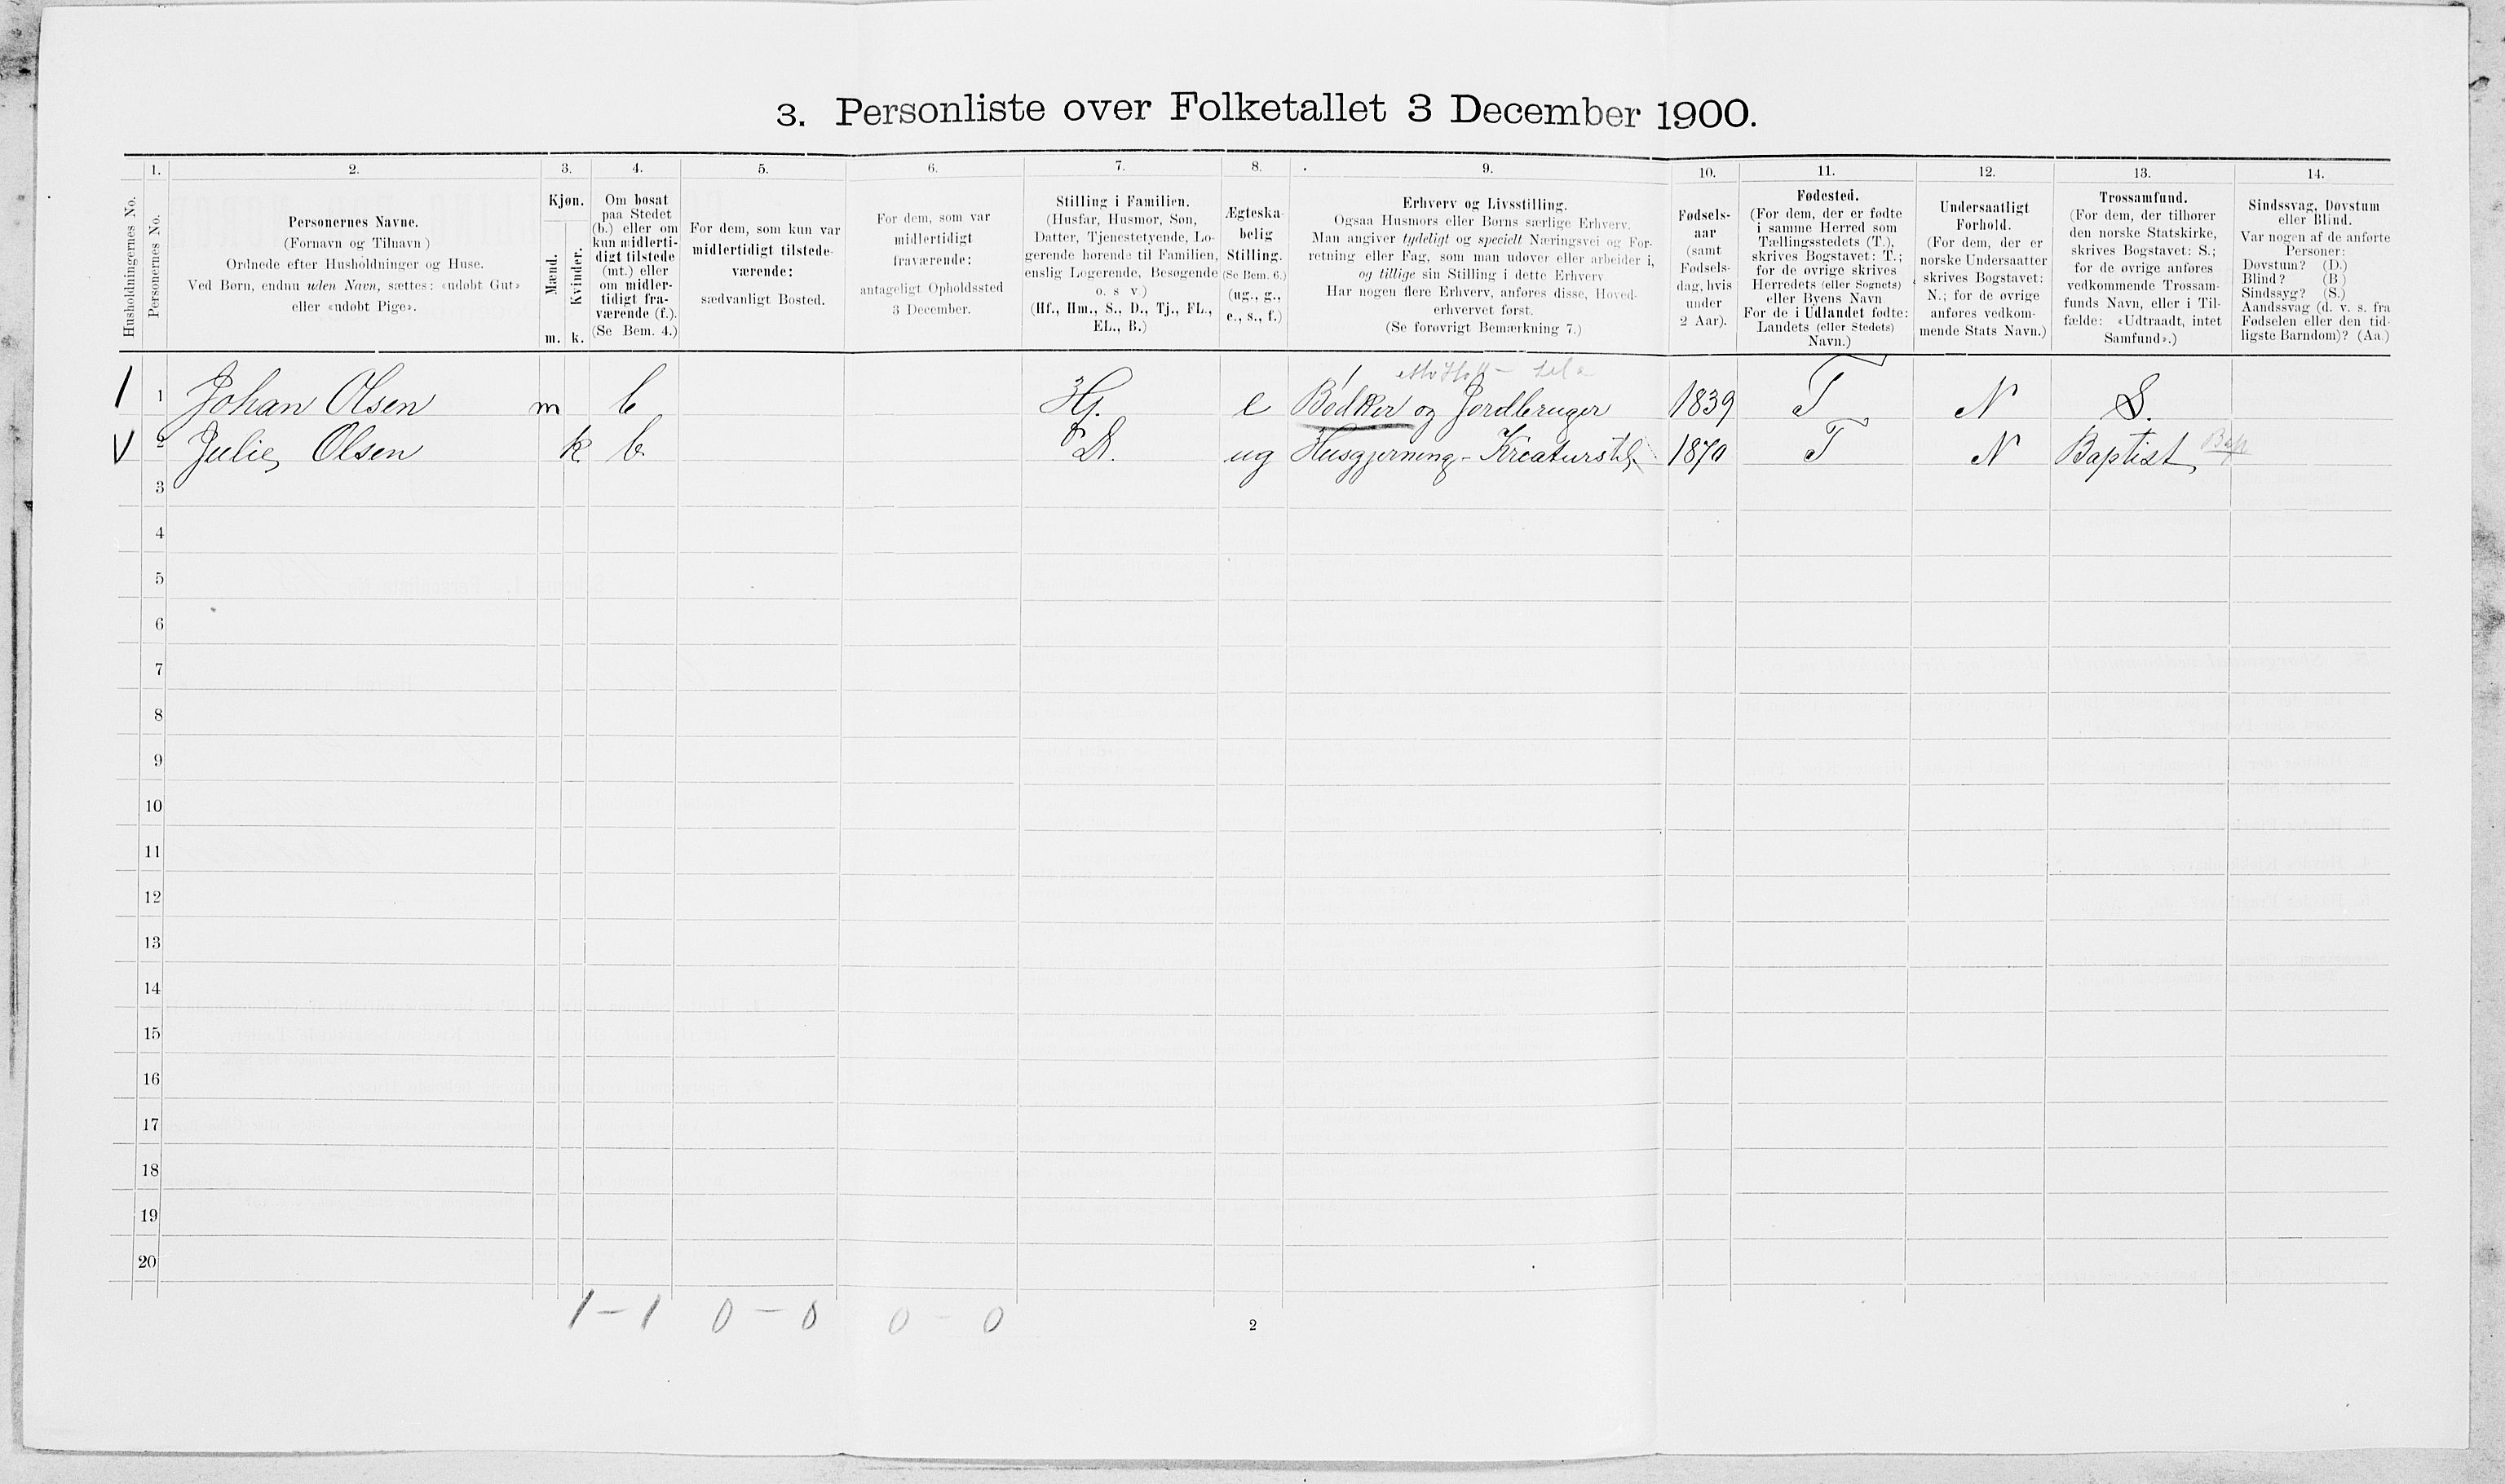 3. Personliste over Folketallet 3 December 1900.
1. 2. 3. 4. 5. 6. 7. 8. 9. 10. 11. 12. 13. 14.
Husholdningernes No.
Personernes No.
Personernes Navne.
(Fornavn og Tilnavn)
Ordnede efter Husholdninger og Huse.
Ved Børn, endnu uden Navn, sættes: «udøbt Gut»
eller «udøbt Pige».
Kjøn.
Mænd.
Kvinder.
m. k.
Om bosat
paa Stedet
(b.) eller om
kun midlerti-
digt tilstede
(mt.) eller
om midler-
tidigt fra-
værende (f.).
(Se Bem. 4.)
For dem, som kun var
midlertidigt tilstede-
værende:
sædvanligt Bosted.
For dem, som var
midlertidigt
fraværende:
antageligt Opholdssted
3 December.
Stilling i Familien.
(Husfar, Husmor, Søn,
Datter, Tjenestetyende, Lo-
gerende hørende til Familien,
enslig Logerende, Besøgende
o. s v)
(Hf., Hm., S., D., Tj., FL.,
EL., B.)
Ægteska-
belig
Stilling.
(Se Bem. 6.)
(ug., g.,
e., s., f.)
Erhverv og Livsstilling.
Ogsaa Husmors eller Børns særlige Erhverv.
Man angiver tydeligt og specielt Næringsvei og For-
retning eller Fag, som man udøver eller arbeider i,
og tillige sin Stilling i dette Erhverv
Har nogen flere Erhverv, anføres disse, Hoved-
erhvervet først.
(Se forøvrigt Bemærkning 7.)
Fødsels-
aar
(samt
Fødsels-
dag, hvis
under
2 Aar).
Fødested.
(For dem, der er fødte
i samme Herred som
Tællingsstedets (T.),
skrives Bogstavet: T.;
for de øvrige skrives
Herredets (eller Sognets)
eller Byens Navn
For de i Udlandet fødte:
Landets (eller Stedets)
Navn.)
Undersaatligt
Forhold.
(For dem, der er
norske Undersaatter
skrives Bogstavet:
N.; for de øvrige
anføres vedkom-
mende Stats Navn.)
Trossamfund.
(For dem, der tilhører
den norske Statskirke,
skrives Bogstavet: S.;
for de øvrige anføres
vedkommende Trossam-
funds Navn, eller i Til-
fælde: «Udtraadt, intet
Samfund».)
Sindssvag, Døvstum
eller Blind.
Var nogen af de anførte
Personer:
Døvstum? (D.)
Blind? (B)
Sindssyg? (S.)
Aandssvag (d. v. s. fra
Fødselen eller den tid-
ligste Barndom)? (Aa.)
1 Johan Olsen m b Hf. e Bødker og Jordbruger 1839 T N S.
2 Julie Olsen k b D. ug Husgjerning - Kreaturstel 1870 T N Baptist Bap
3
4
5
6
7
8
9
10
11
12
13
14
15
16
17
18
19
20
1 - 1 0 - 0 0 - 0
2